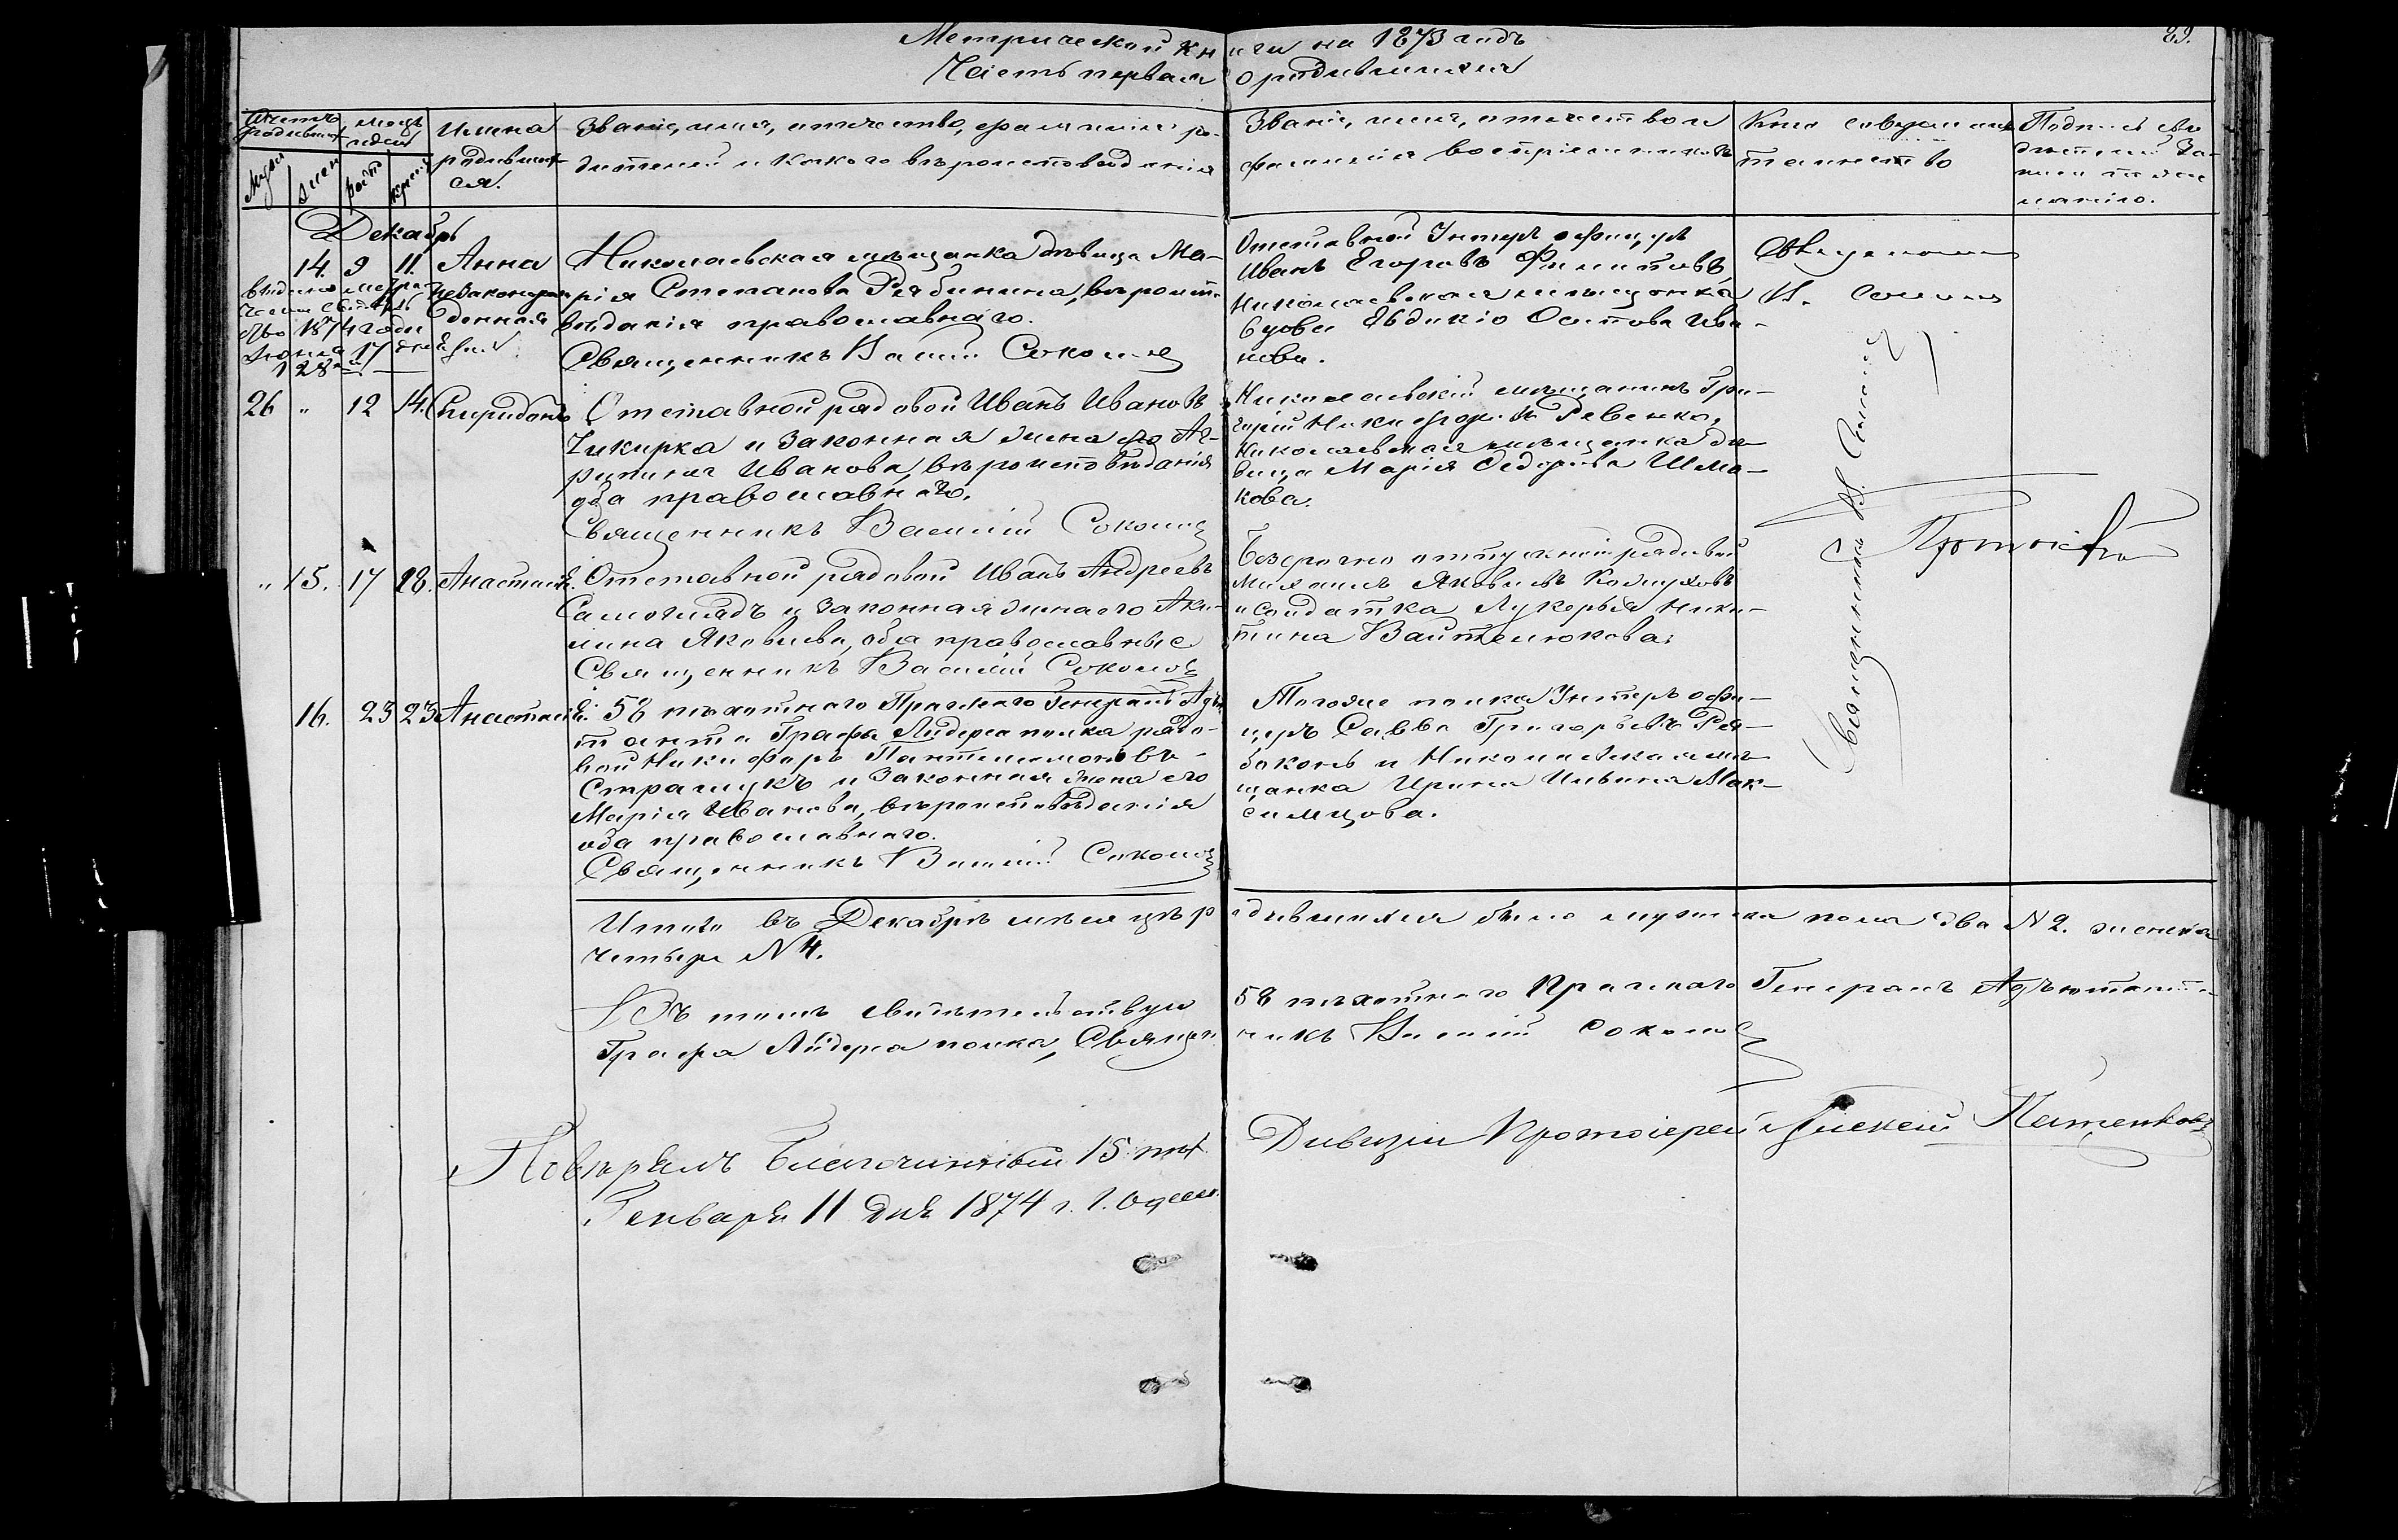 Метрической книги на 1873 годъ
89.
Часть первая о родившихся
Счетъ родившихся
Муж.
Жен.
Месяцъ и день
рожд.
крещ.
Имена родившихся.
Званіе, имя, отчество, фамилія ро-
дителей и какого вѣроисповѣданія
Званіе, имя, отчество и
фамилія воспріемниковъ
Кто совершалъ
таинство
Подпись сви
дѣтелей за-
писи по же
ланію.
Декабрь
14. 9 11. Анна
незаконорож
денная
1874 года
17
Николаевская мѣщанка дѣвица Ма-
рія Степанова Рябинина, вѣроиспо-
вѣданія православнаго.
Священникъ Василій Соколовъ
Отставной Унтеръ офицеръ
Иванъ Егоровъ Филиповъ,
Николаевская мѣщанка
вдова Евдокія Осипова Ива-
нова.
Священникъ
В. Соколовъ
26 " 12 14. Спиридонъ
Отставной рядовой Иванъ Ивановъ
Чикирка и законная жена его Аг-
рипина Иванова, вѣроисповѣданія
оба православнаго.
Священникъ Василій Соколовъ
Николаевскій мѣщанинъ Гри-
горій Никифоровъ Ревенко,
Николаевская мѣщанка дѣ-
вица Марія Федорова Шма-
кова.
" 15. 17 18. Анастасія.
Отставной рядовой Иванъ Андреевъ
Самогладъ и законная жена его Аки-
лина Яковлева, оба православные
Священникъ Василій Соколовъ
Безсрочно отпускной рядовой
Михаилъ Яковлевъ Кожуховъ
и солдатка Лукерья Ники-
тина Вайтелюкова.
Священникъ В. Соколовъ
16. 23 23 Анастасія.
58 пѣхотнаго Пражскаго Генералъ Адъю
танта Графа Лидерса полка рядо-
вой Никифоръ Пантелимоновъ
Страшукъ и законная жена его
Марія Иванова, вѣроисповѣданія
оба православнаго.
Священникъ Василій Соколовъ
Тогоже полка Унтеръ офи-
церъ Савва Григорьевъ Ря-
боконь и Николаевская мѣ-
щанка Ирина Ильина Мак-
симцова.
Итого въ Декабрѣ мѣсяцѣ родившихся было мужеска пола два N 2. женска
четыре N 4.
Въ томъ свидѣтельствую 58 пѣхотнаго Пражскаго Генералъ Адъютанта
Графа Лидерса полка, Священникъ Василій Соколовъ
Повѣрялъ Благочинный 15 пѣх. Дивизіи Протоіерей Алексій
Генваря 11 дня 1874 г. г. Одесса.